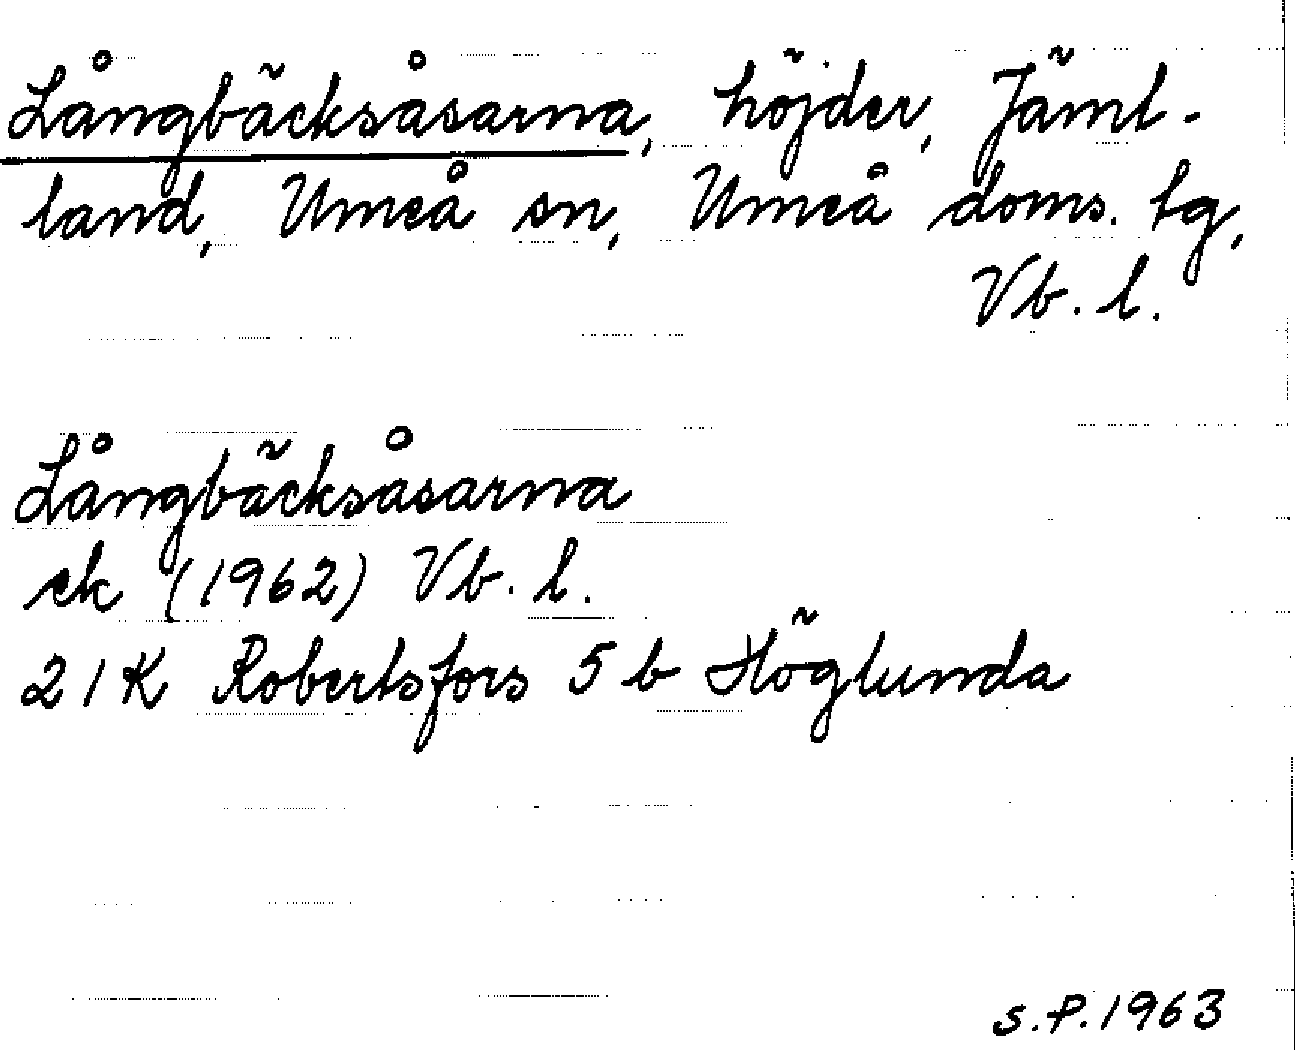 Långbäcksåsarna, höjder, Jämt-
land, Umeå sn, Umeå doms. tg,
Vb. l.
Långbäcksåsarna
ek (1962) Vb. l.
21K Robertsfors 5 b Höglunda
S.P.1963